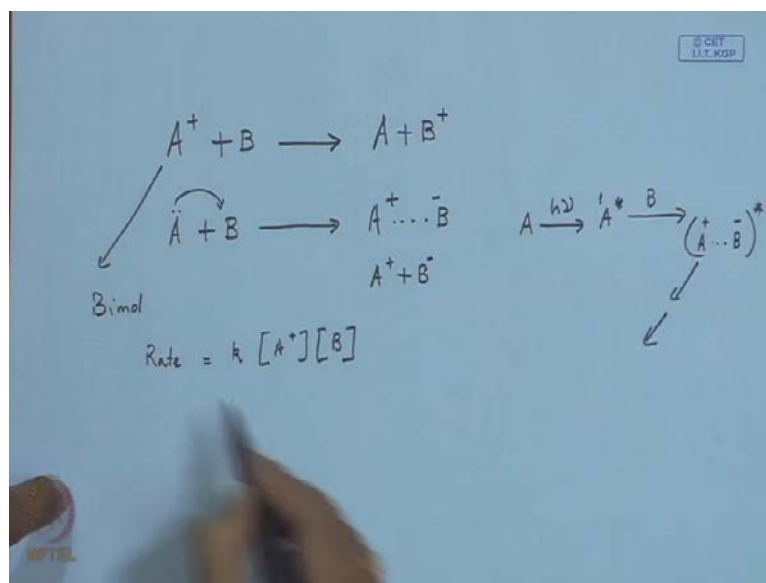 © CET
I.I.T. KGP
A⁺ + B ⟶ A + B⁺
Ä + B ⟶ A⁺....B⁻
A⁺ + B⁻
A hν⟶ ¹A* B⟶ (A⁺...B⁻)*
Bimol
Rate = k [A⁺][B]
NPTEL